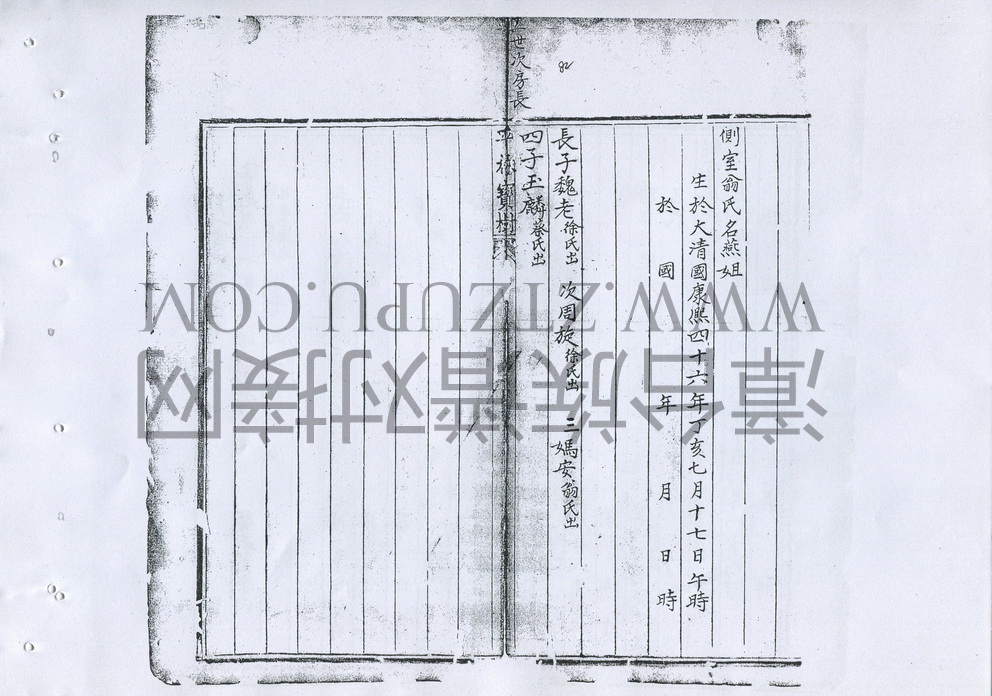 側室翁氏名燕姐
生於大清國康熙四十六年丁亥七月十七日午時
於 國 年 月 日 時
長子魏老徐氏出 次周旋徐氏出 三媽安翁氏出
四子玉麟蔡氏出
世次房長
82
寶樹
WWW.ZTZUPU.COM
漳台族谱对接网